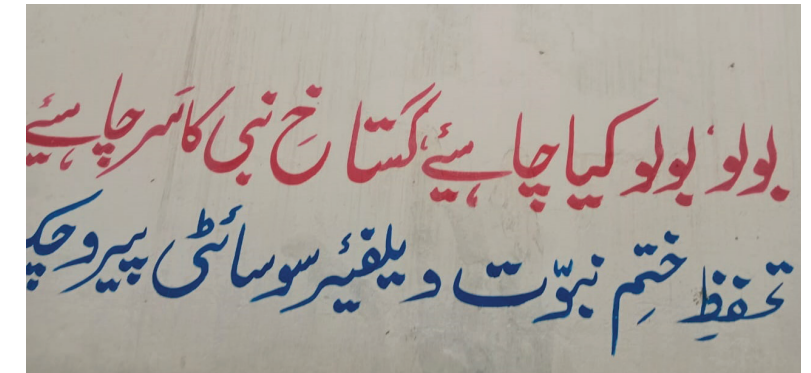 بولو بولو کیا چاہیئے گستاخِ نبی کا سَر چاہیئے
تحفظِ ختمِ نبوّت ویلفیئر سوسائٹی پیرو چک